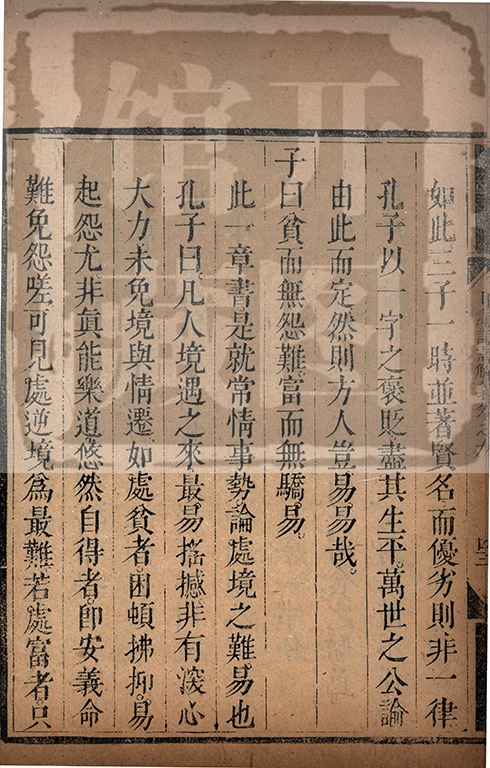 如此三子一時並著賢名而優劣則非一律
孔子以一字之褒貶盡其生平萬世之公論
由此而定然則方人豈易易哉
子曰貧而無怨難富而無驕易
此一章書是就常情事勢論處境之難易也
孔子曰凡人境遇之來最易搖撼非有深心
大力未免境與情遷如處貧者困頓拂抑易
起怨尤非眞能樂道悠然自得者卽安義命
難免怨嗟可見處逆境爲最難若處富者只